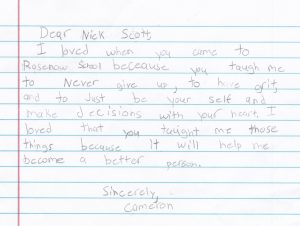 Dear Nick Scott,
I loved when you came to
Rosenow School beceause you taugh me
to Never give up, to have grit,
and to Just be your self and
make decisions with your heart. I
loved that you taught me those
things because It will help me
become a better person.
Sincerely,
Cameron